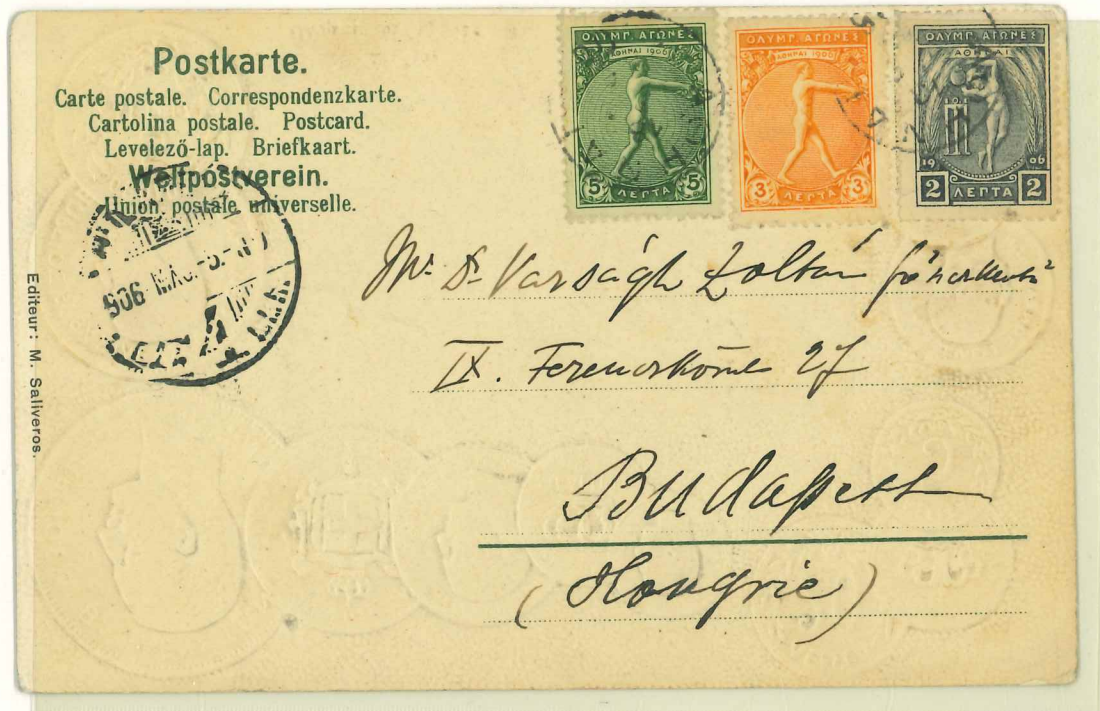 Postkarte.
Carte postale. Correspondenzkarte.
Cartolina postale. Postcard.
Levelező-lap. Briefkaart.
Weltpostverein.
Union postale universelle.
ΟΛΥΜΠ. ΑΓΩΝΕΣ
ΑΘΗΝΑΙ 1906
5 ΛΕΠΤΑ 5
ΟΛΥΜΠ. ΑΓΩΝΕΣ
ΑΘΗΝΑΙ 1906
3 ΛΕΠΤΑ 3
ΟΛΥΜΠ. ΑΓΩΝΕΣ
ΑΘΗΝΑΙ
19 06
2 ΛΕΠΤΑ 2
906 MÁJ.
Mr Dr Varságh Zoltán
IX. Ferencz körút 27
Budapest
(Hongrie)
Editeur: M. Saliveros.